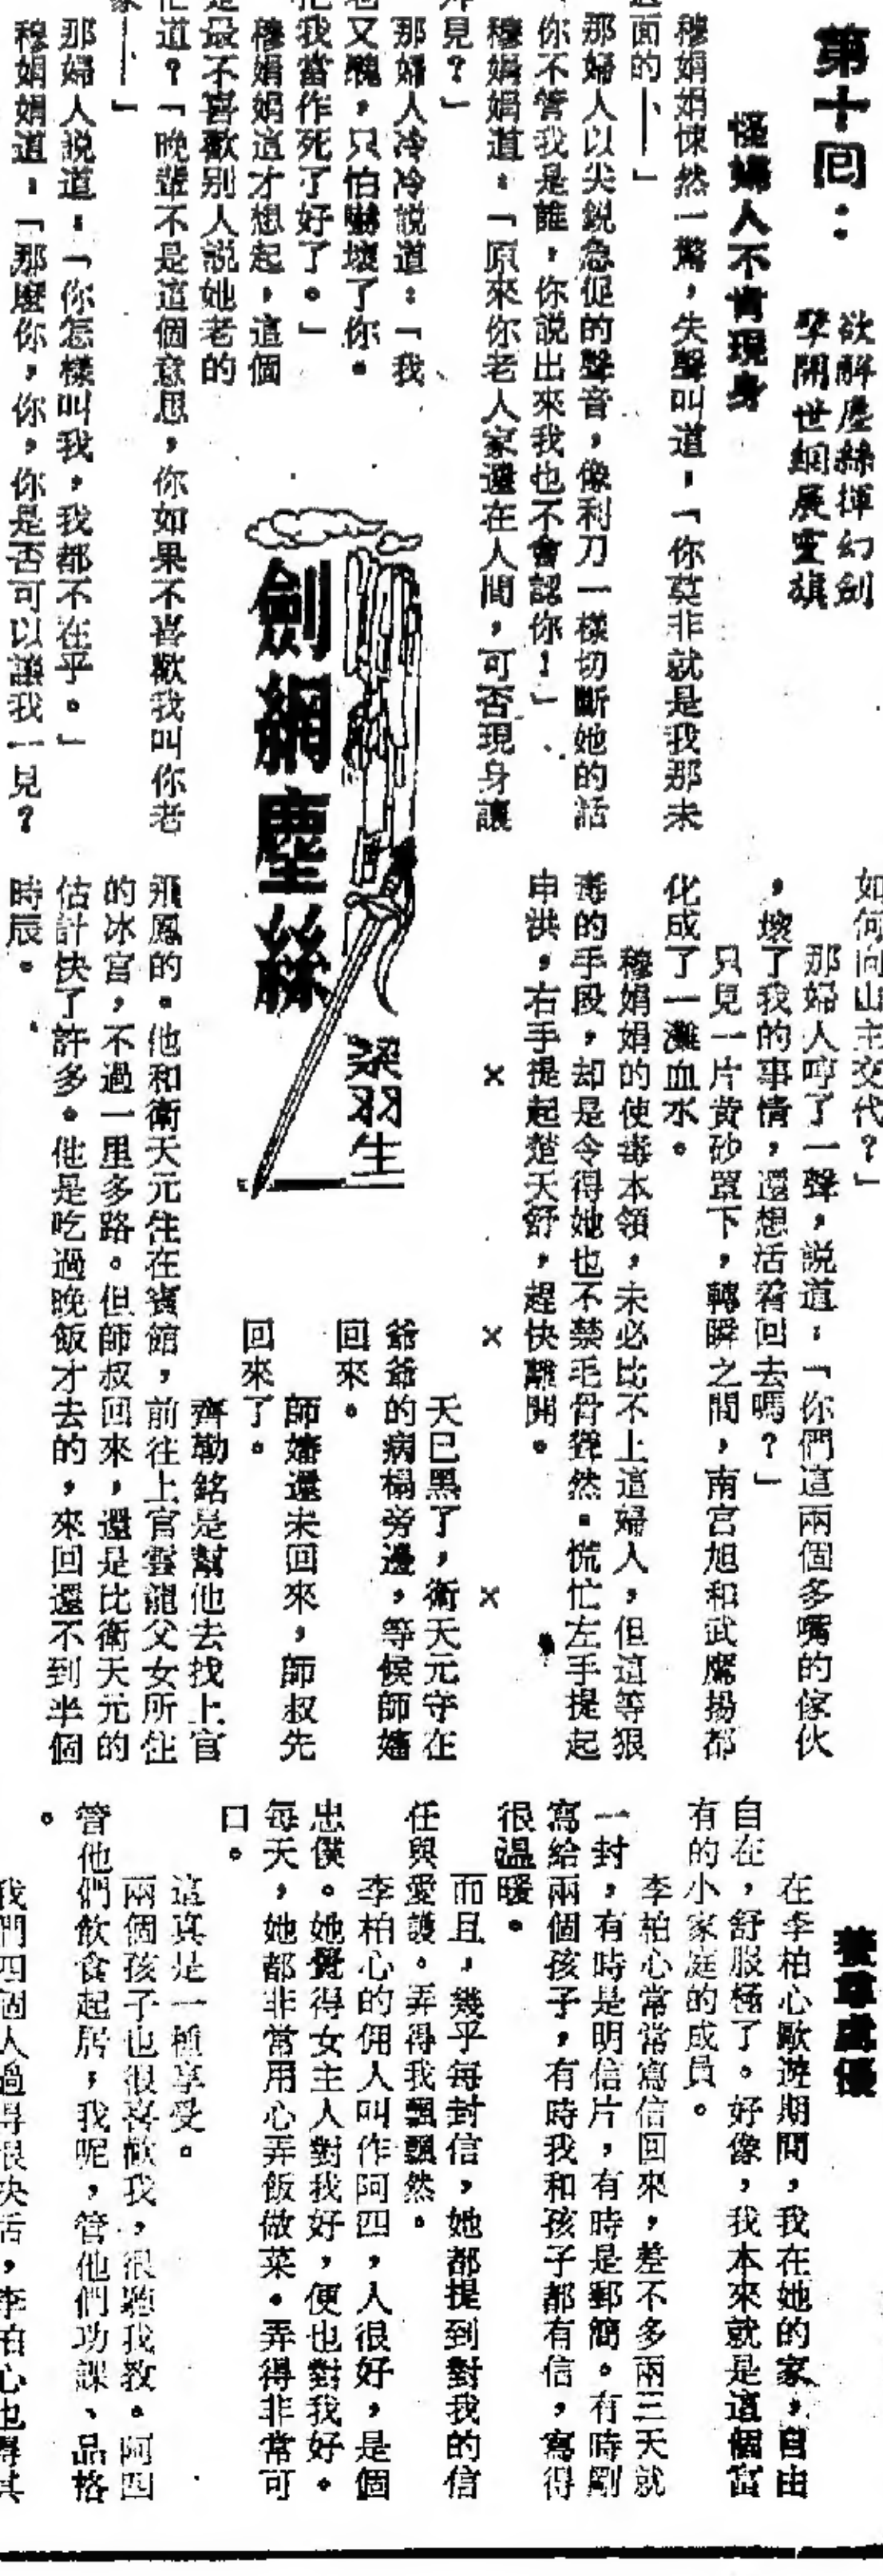 第十回：
欲解塵絲揮幻劍
擘開世網展靈旗
怪婦人不肯現身
穆娟娟悚然一驚，失聲叫道：「你莫非就是我那未
面的——」
那婦人以尖銳急促的聲音，像利刀一樣切斷她的話
你不管我是誰，你說出來我也不會認你！」
穆娟娟道：「原來你老人家還在人間，可否現身讓
見？」
那婦人冷冷說道：「我
又醜，只怕嚇壞了你。
我當作死了好了。」
穆娟娟這才想起，這個
最不喜歡別人說她老的
道？「晚輩不是這個意思，你如果不喜歡我叫你老
——」
那婦人說道：「你怎樣叫我，我都不在乎。」
穆娟娟道：「那麼你，你，你是否可以讓我一見？
劍網塵絲
梁羽生
如何向山主交代？」
那婦人哼了一聲，說道：「你們這兩個多嘴的傢伙
，壞了我的事情，還想活着回去嗎？」
只見一片黃砂罩下，轉瞬之間，南宮旭和武鷹揚都
化成了一灘血水。
穆娟娟的使毒本領，未必比不上這婦人，但這等狠
毒的手段，却是令得她也不禁毛骨聳然。慌忙左手提起
申洪，右手提起楚天舒，趕快離開。
× × ×
天已黑了，衛天元守在
爺爺的病榻旁邊，等候師嬸
回來。
師嬸還未回來，師叔先
回來了。
齊勒銘是幫他去找上官
飛鳳的。他和衛天元住在賓館，前往上官雲龍父女所住
的冰宮，不過一里多路。但師叔回來，還是比衛天元的
估計快了許多。他是吃過晚飯才去的，來回還不到半個
時辰。
在李柏心歐遊期間，我在她的家，自由
自在，舒服極了。好像，我本來就是這個富
有的小家庭的成員。
李柏心常常寫信回來，差不多兩三天就
一封，有時是明信片，有時是郵簡。有時剛
寫給兩個孩子，有時我和孩子都有信，寫得
很溫暖。
而且，幾乎每封信，她都提到對我的信
任與愛護。弄得我飄飄然。
李柏心的佣人叫作阿四，人很好，是個
忠僕。她覺得女主人對我好，便也對我好。
每天，她都非常用心弄飯做菜。弄得非常可
口。
這真是一種享受。
兩個孩子也很喜歡我，很聽我教。阿四
管他們飲食起居，我呢，管他們功課、品格
。
我們四個人過得很快活，李柏心也得其